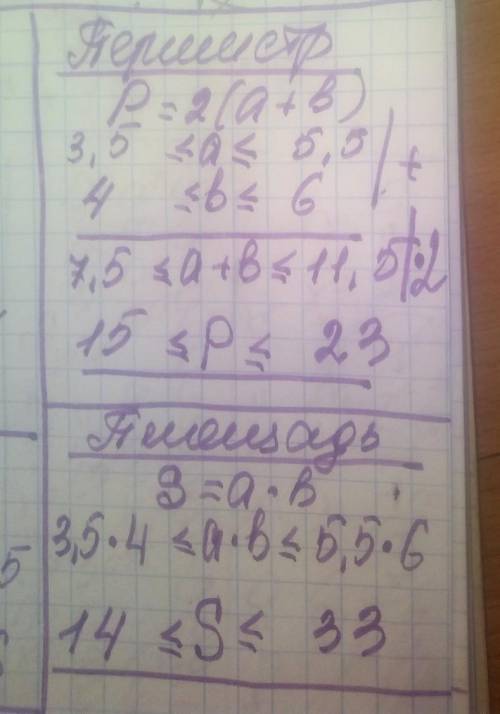 Периметр
P = 2(a + b)
3,5 ≤ a ≤ 5,5 | +
4 ≤ b ≤ 6
7,5 ≤ a + b ≤ 11,5 | · 2
15 ≤ P ≤ 23
Площадь
S = a · b
3,5 · 4 ≤ a · b ≤ 5,5 · 6
14 ≤ S ≤ 33
5